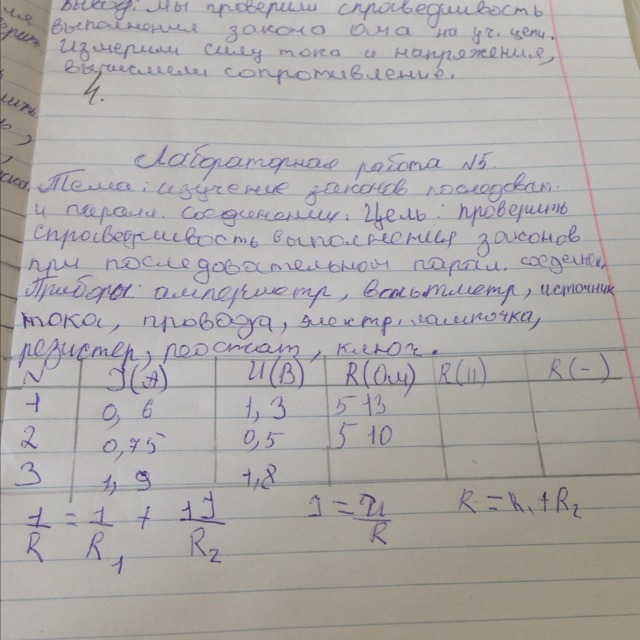 вывод: Мы проверили справедливость
выполнения закона Ома на уч. цепи.
Измерили силу тока и напряжения,
вычислили сопротивление.
4.
Лабораторная работа N5
Тема: изучение законов последоват.
и парал. соединения. Цель: проверить
справедливость выполнения законов
при последовательном парал. соединен.
Приборы: амперметр, вольтметр, источник
тока, провода, электр. лампочка,
резистер, реостат, ключ.
N J(A) U(B) R(Ом) R(II) R(-)
1 0,6 1,3 5 13
2 0,75 0,5 5 10
3 1,9 1,8
1/R = 1/R1 + 1/R2 J = U/R R = R1 + R2